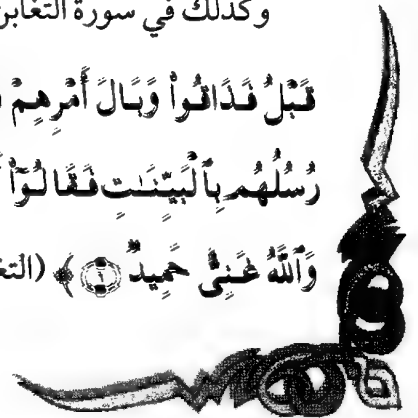 وكذلك في سورة التغابن
قَبْلُ فَذَاقُوا۟ وَبَالَ أَمْرِهِمْ
رُسُلُهُم بِٱلْبَيِّنَـٰتِ فَقَالُوٓا۟
وَٱللَّهُ غَنِىٌّ حَمِيدٌ ۝٦ ﴾ (التغ